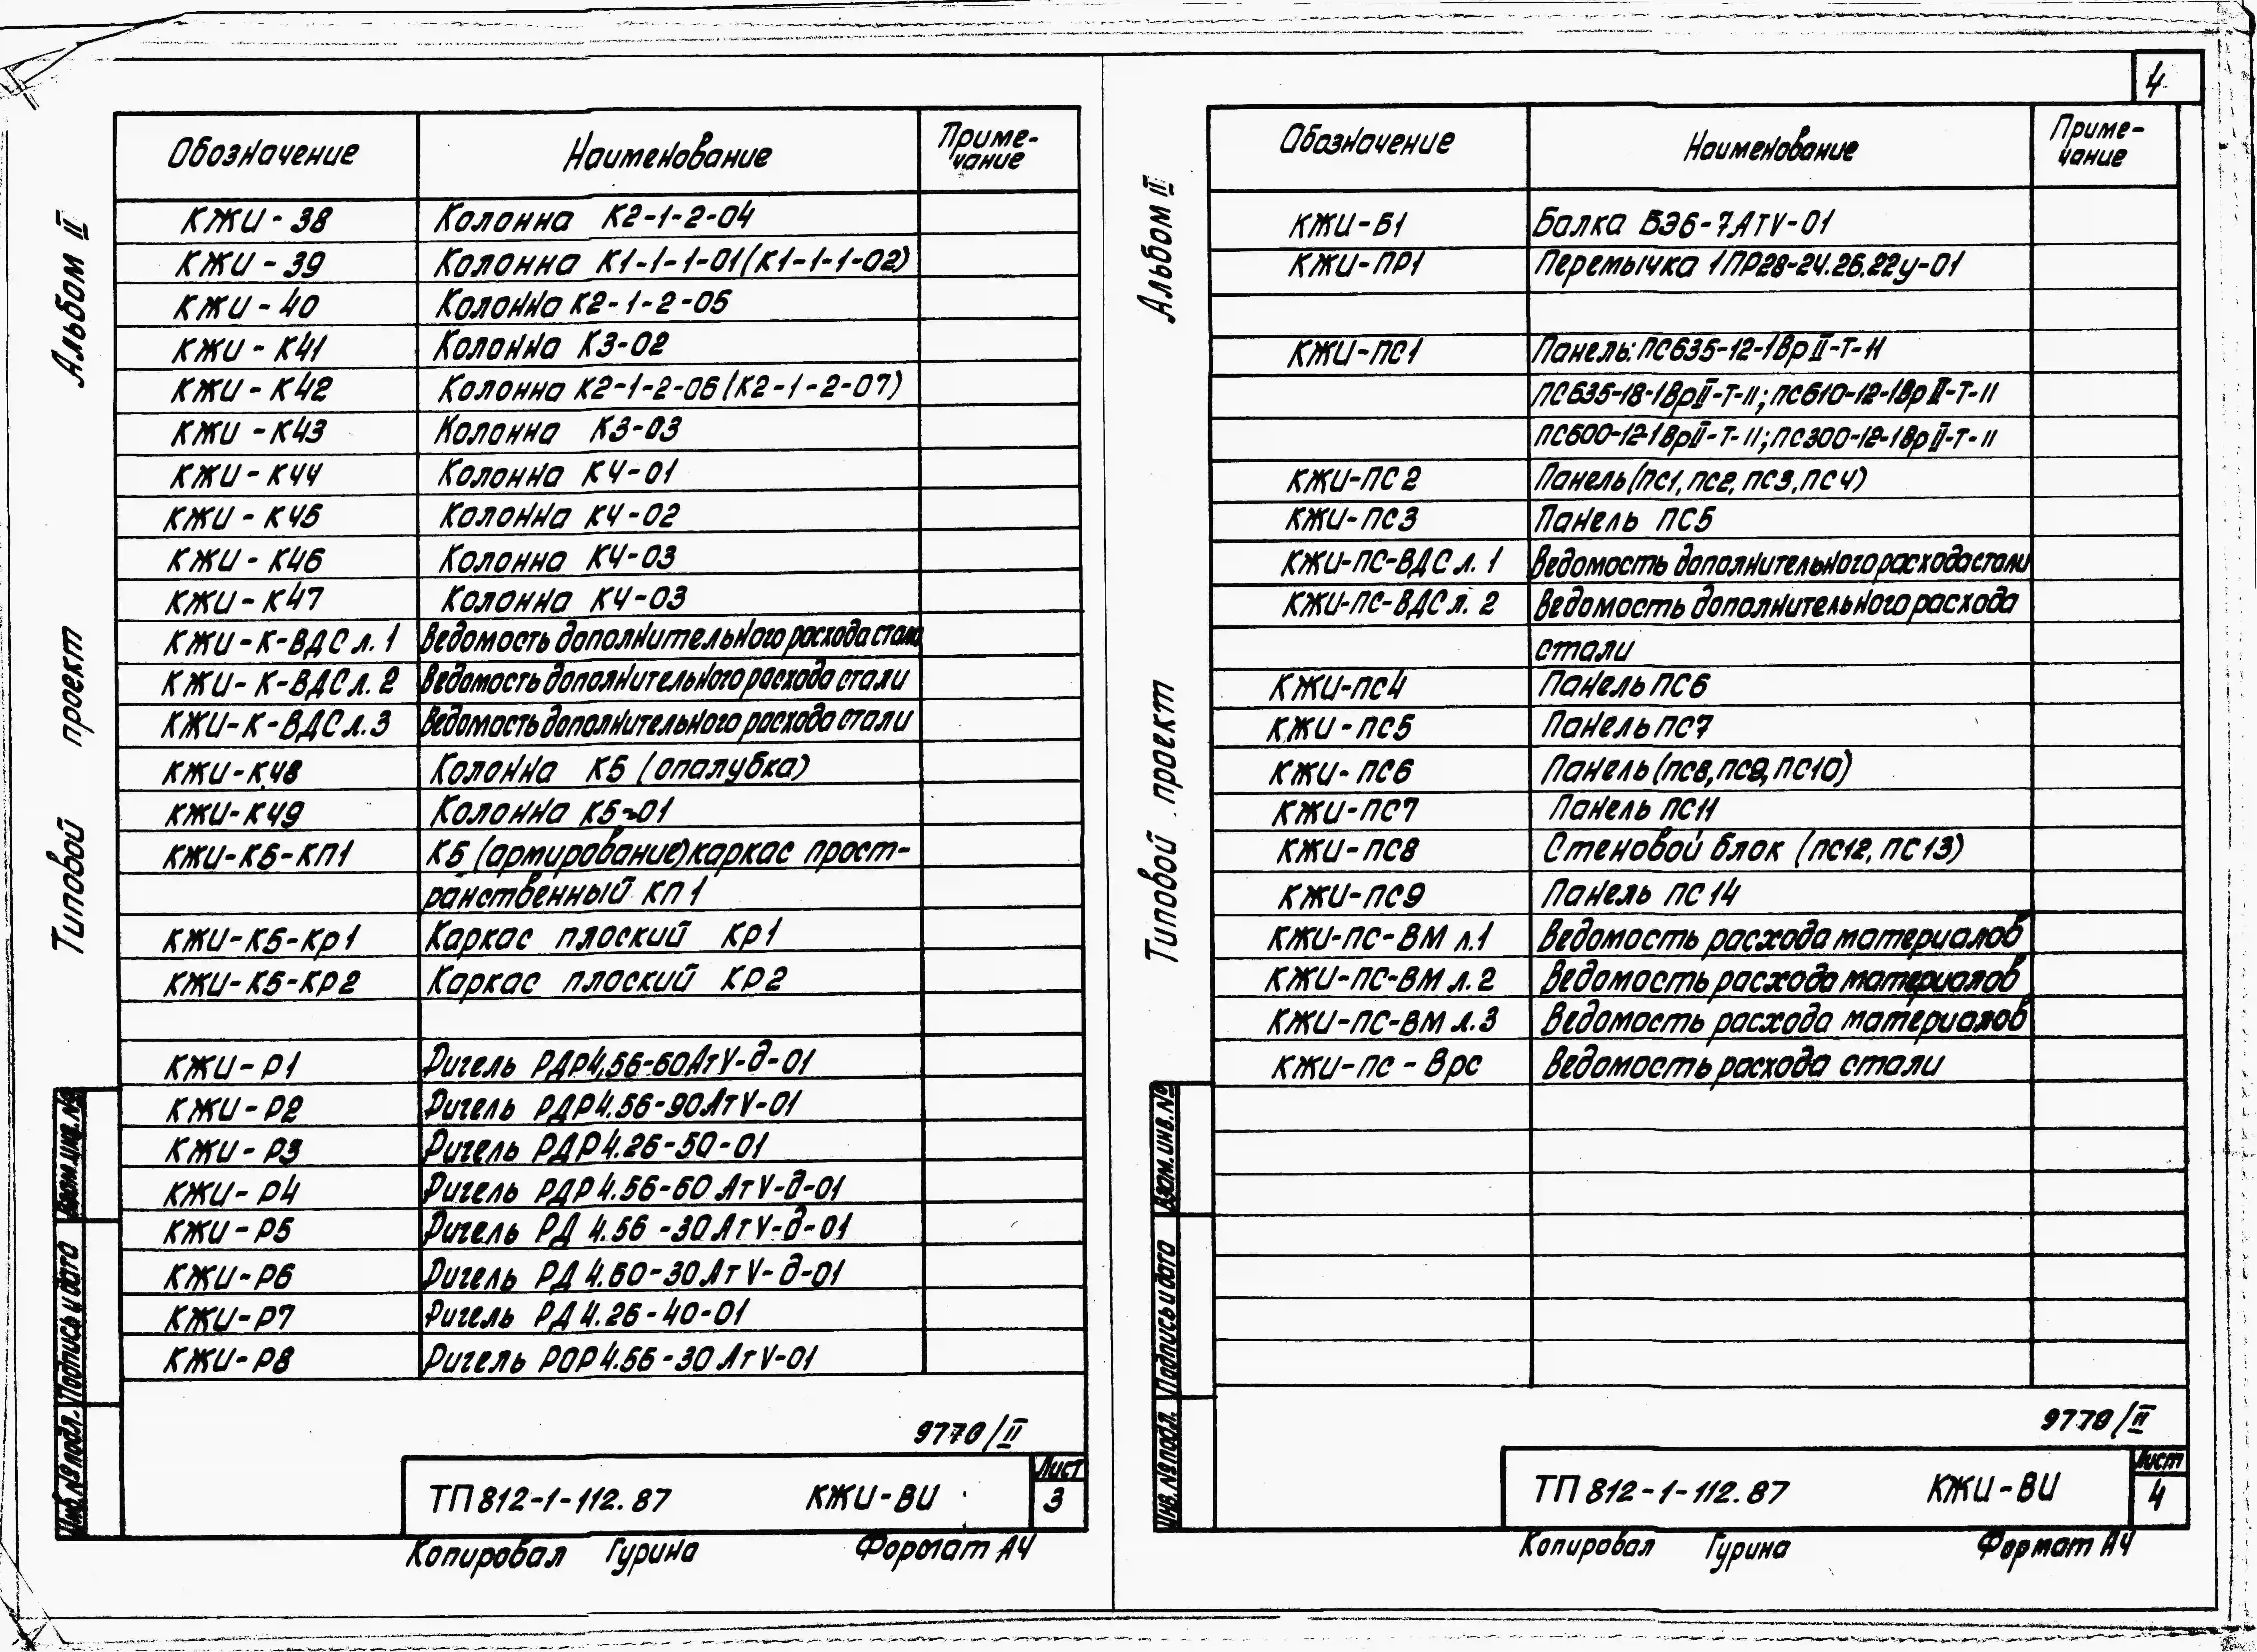 4
Альбом II
Типовой проект
Обозначение Наименование Приме-
чание
КЖИ-38 Колонна К2-1-2-04
КЖИ-39 Колонна К1-1-1-01(К1-1-1-02)
КЖИ-40 Колонна К2-1-2-05
КЖИ-К41 Колонна К3-02
КЖИ-К42 Колонна К2-1-2-06(К2-1-2-07)
КЖИ-К43 Колонна К3-03
КЖИ-К44 Колонна К4-01
КЖИ-К45 Колонна К4-02
КЖИ-К46 Колонна К4-03
КЖИ-К47 Колонна К4-03
КЖИ-К-ВДС л.1 Ведомость дополнительного расхода стали
КЖИ-К-ВДС л.2 Ведомость дополнительного расхода стали
КЖИ-К-ВДС л.3 Ведомость дополнительного расхода стали
КЖИ-К48 Колонна К5 (опалубка)
КЖИ-К49 Колонна К5-01
КЖИ-К5-КП1 К5 (армирование) каркас прост-
ранственный КП1
КЖИ-К5-Кр1 Каркас плоский Кр1
КЖИ-К5-КР2 Каркас плоский КР2
КЖИ-Р1 Ригель РДР4.56-60АтV-д-01
КЖИ-Р2 Ригель РДР4.56-90АтV-01
КЖИ-Р3 Ригель РДР4.26-50-01
КЖИ-Р4 Ригель РДР4.56-60АтV-д-01
КЖИ-Р5 Ригель РД 4.56-30АтV-д-01
КЖИ-Р6 Ригель РД 4.60-30АтV-д-01
КЖИ-Р7 Ригель РД 4.26-40-01
КЖИ-Р8 Ригель РОР4.56-30АтV-01
Взам.инв.№
Подпись и дата
Инв.№подл.
9770/II
ТП 812-1-112.87 КЖИ-ВИ Лист
3
Копировал Гурина Формат А4
Альбом II
Типовой проект
Обозначение Наименование Приме-
чание
КЖИ-Б1 Балка БЭ6-7АтV-01
КЖИ-ПР1 Перемычка 1ПР28-24.26.22у-01
КЖИ-ПС1 Панель: ПС635-12-1ВрII-Т-11
ПС635-18-1ВрII-Т-11; ПС610-12-1ВрII-Т-11
ПС600-12-1ВрII-Т-11; ПС300-12-1ВрII-Т-11
КЖИ-ПС2 Панель (ПС1, ПС2, ПС3, ПС4)
КЖИ-ПС3 Панель ПС5
КЖИ-ПС-ВДС л.1 Ведомость дополнительного расхода стали
КЖИ-ПС-ВДС л.2 Ведомость дополнительного расхода
стали
КЖИ-ПС4 Панель ПС6
КЖИ-ПС5 Панель ПС7
КЖИ-ПС6 Панель (ПС8, ПС9, ПС10)
КЖИ-ПС7 Панель ПС11
КЖИ-ПС8 Стеновой блок (ПС12, ПС13)
КЖИ-ПС9 Панель ПС14
КЖИ-ПС-ВМ л.1 Ведомость расхода материалов
КЖИ-ПС-ВМ л.2 Ведомость расхода материалов
КЖИ-ПС-ВМ л.3 Ведомость расхода материалов
КЖИ-ПС-Врс Ведомость расхода стали
Взам.инв.№
Подпись и дата
Инв.№подл.
9770/II
ТП 812-1-112.87 КЖИ-ВИ Лист
4
Копировал Гурина Формат А4